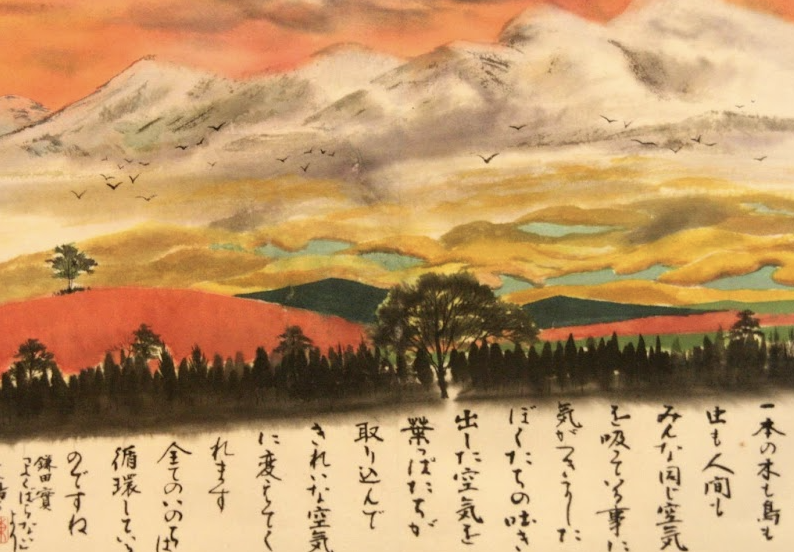 一本の木も鳥も
虫も人間も
みんな同じ空気
を吸っている事に
気がつきました
ぼくたちの吐き
出した空気を
葉っぱたちが
取り込んで
きれいな空気
に変えてく
れます
全てのいのちは
循環している
のですね
鎌田實
「がんばらない」
より